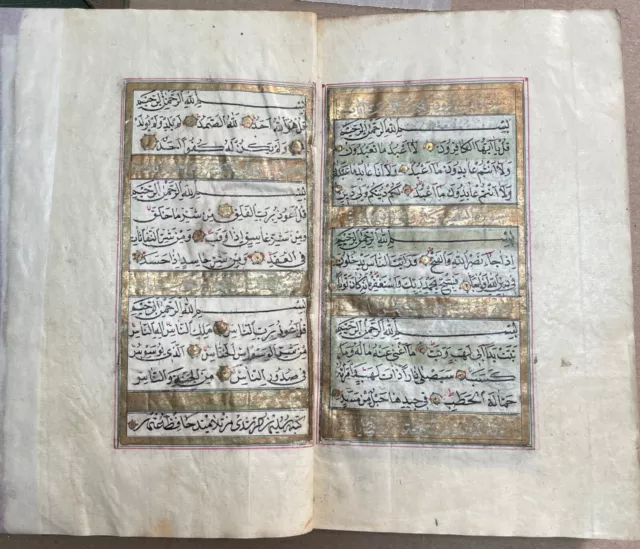 بسم الله الرحمن الرحيم
قل يا ايها الكافرون لا اعبد ما تعبدون
ولا انتم عابدون ما اعبد ولا انا عابد ما عبدتم
ولا انتم عابدون ما اعبد لكم دينكم ولى دين
بسم الله الرحمن الرحيم
اذا جاء نصر الله والفتح ورايت الناس يدخلون
فى دين الله افواجا فسبح بحمد ربك واستغفره انه كان توابا
بسم الله الرحمن الرحيم
تبت يدا ابى لهب وتب ما اغنى عنه ماله وما
كسب سيصلى نارا ذات لهب وامراته
حمالة الحطب فى جيدها حبل من مسد
بسم الله الرحمن الرحيم
قل هو الله احد الله الصمد لم يلد ولم يولد
ولم يكن له كفوا احد
بسم الله الرحمن الرحيم
قل اعوذ برب الفلق من شر ما خلق
ومن شر غاسق اذا وقب ومن شر النفاثات
فى العقد ومن شر حاسد اذا حسد
بسم الله الرحمن الرحيم
قل اعوذ برب الناس ملك الناس اله الناس
من شر الوسواس الخناس الذى يوسوس
فى صدور الناس من الجنة والناس
كتبه من تلاميذ حافظ عثمان